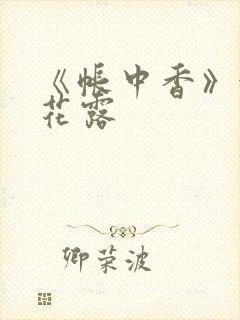 《帐中香》
花露
卿荣波